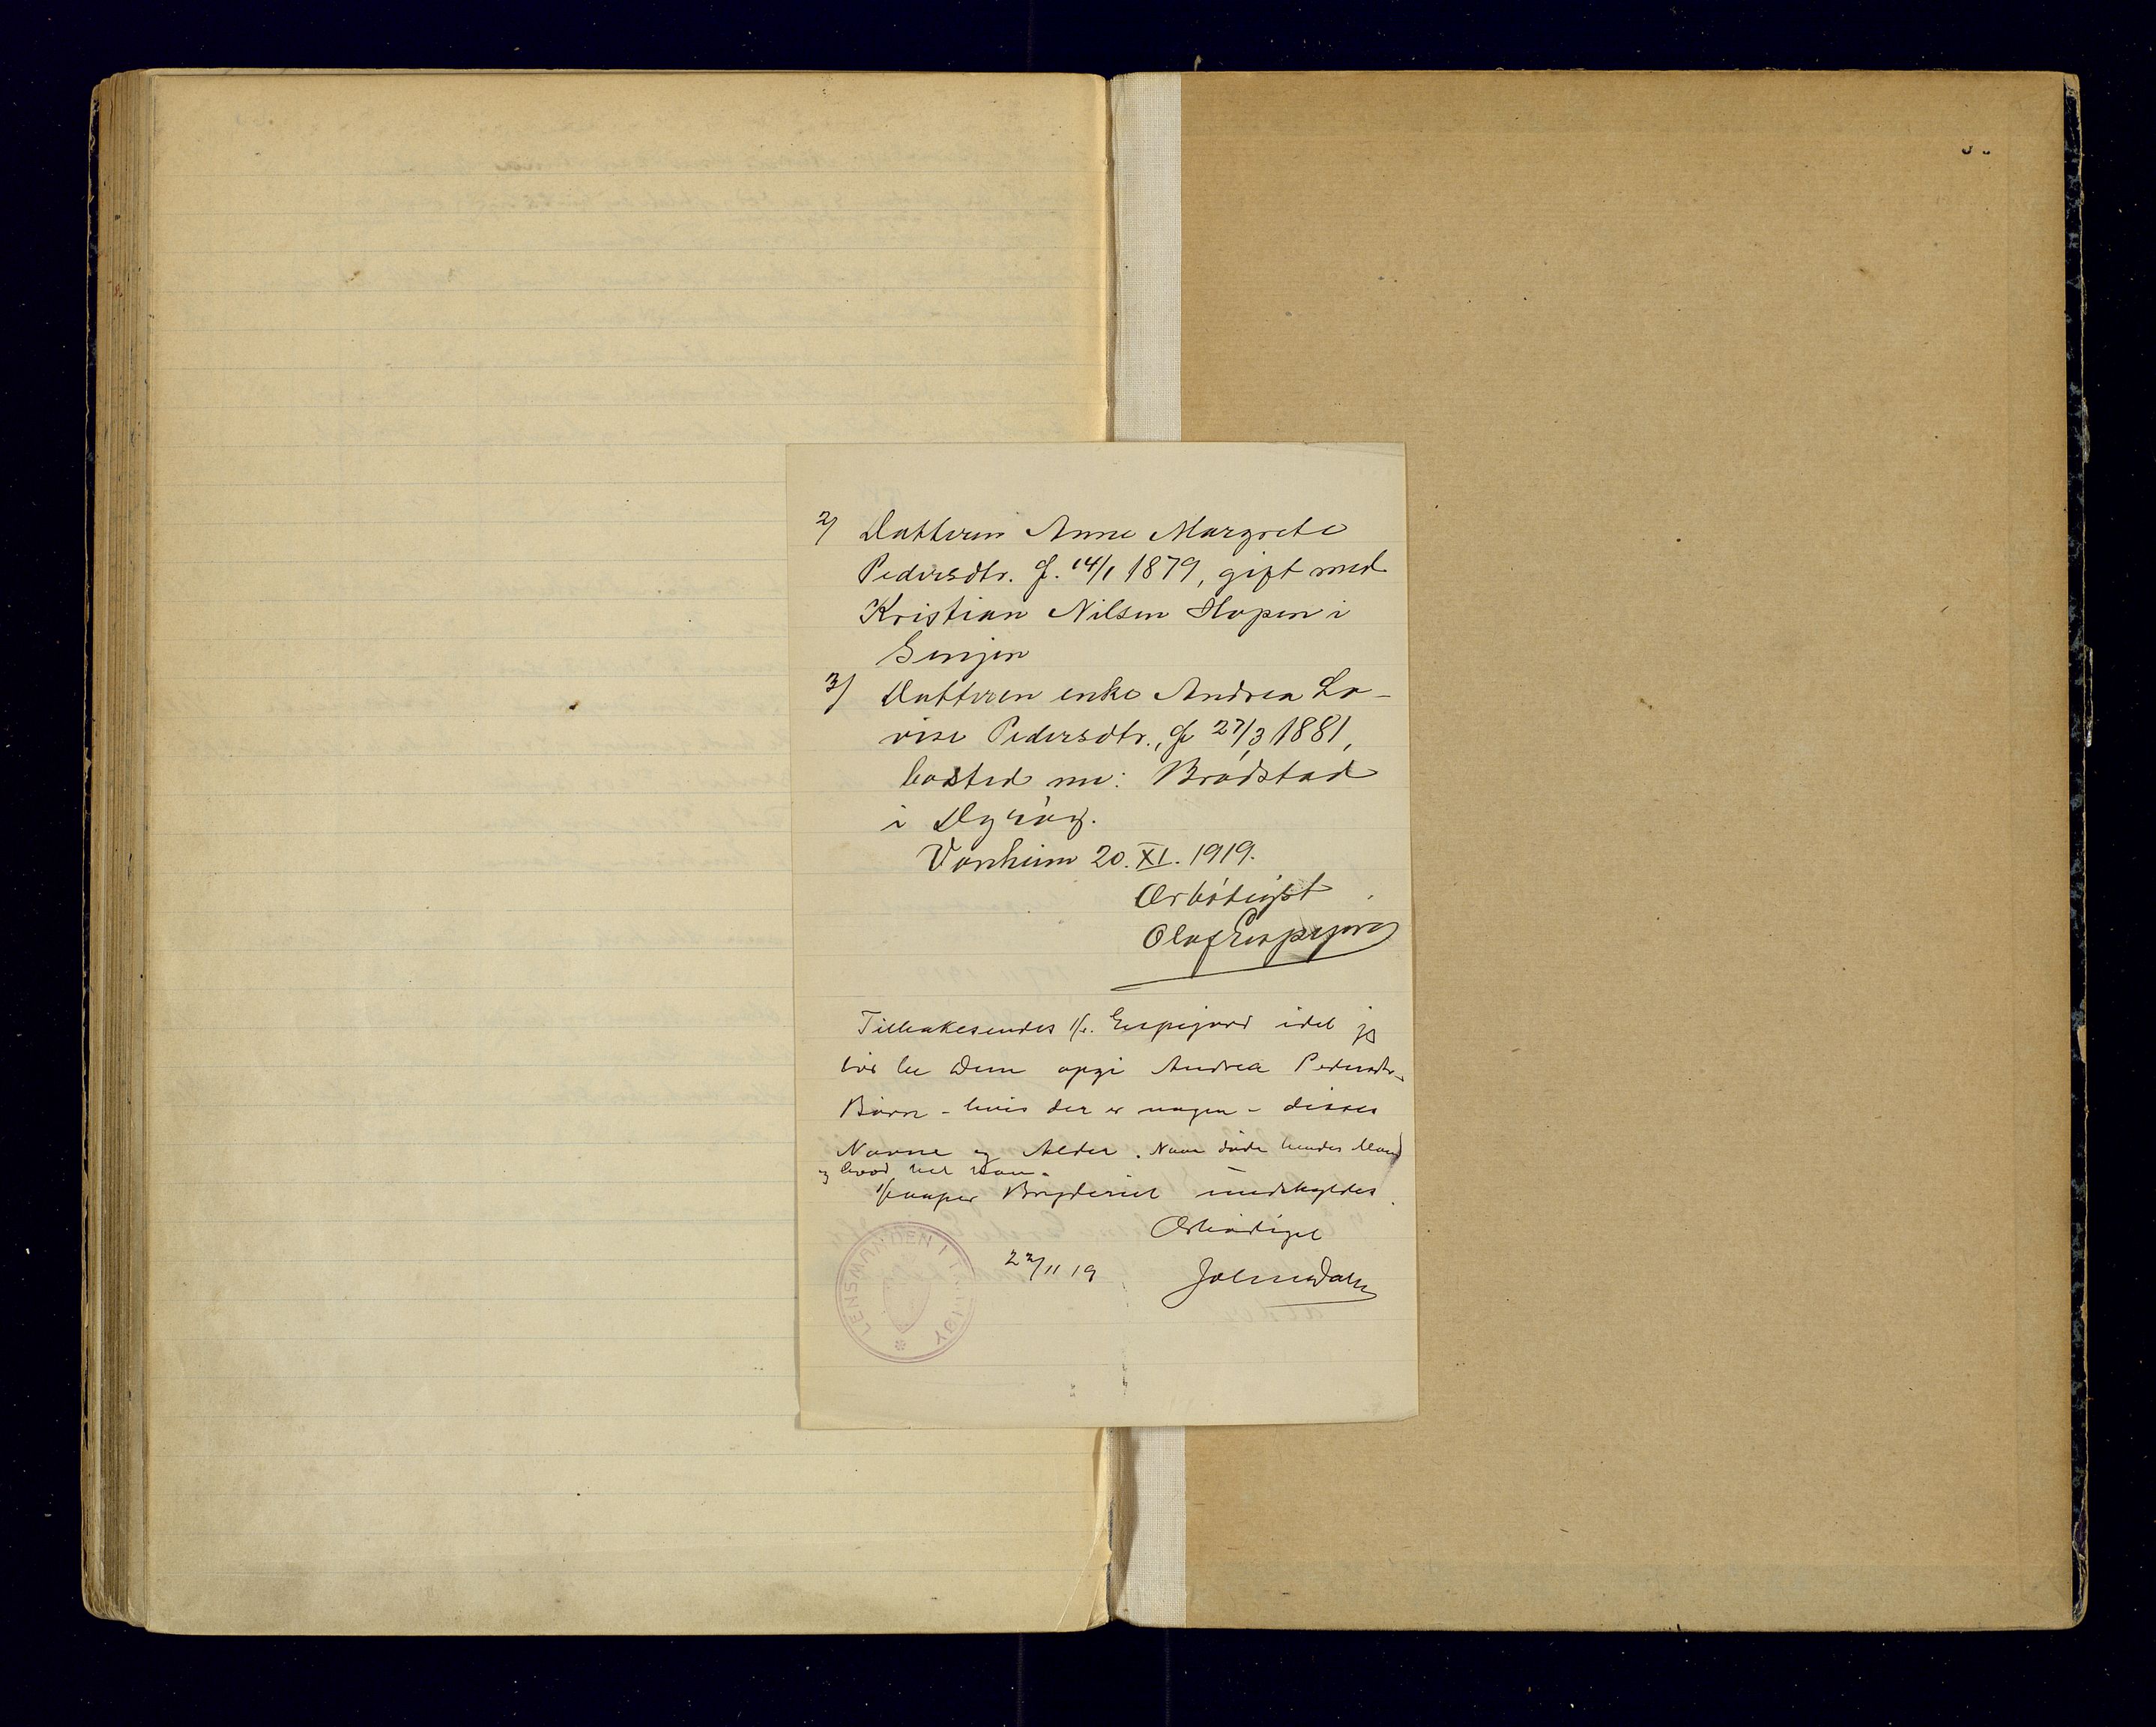 2/ Datteren Anne Margrete
Pedersdtr. f. 14/1 1879, gift med
Kristian Nilsen Hopen i
Senjen
3/ Datteren enke Andrea Lo-
vise Pedersdtr., f 27/3 1881,
bosted nu: Brødstad
i Dyrøy.
Vonheim 20. XI. 1919.
Ærbødigst
Olaf Espejord
Tilbakesendes Espejord idet jeg
bør be Dem opgi Andrea Pedersdtr.
Børn - hvis der er nogen - disses
Navne og Alder. Naar døde hendes Mand
og hvad het han.
Bryderiet undskyldes.
Ærbødigst
22/11 19 Johnsdahl
LENSMANDEN I TRANØY